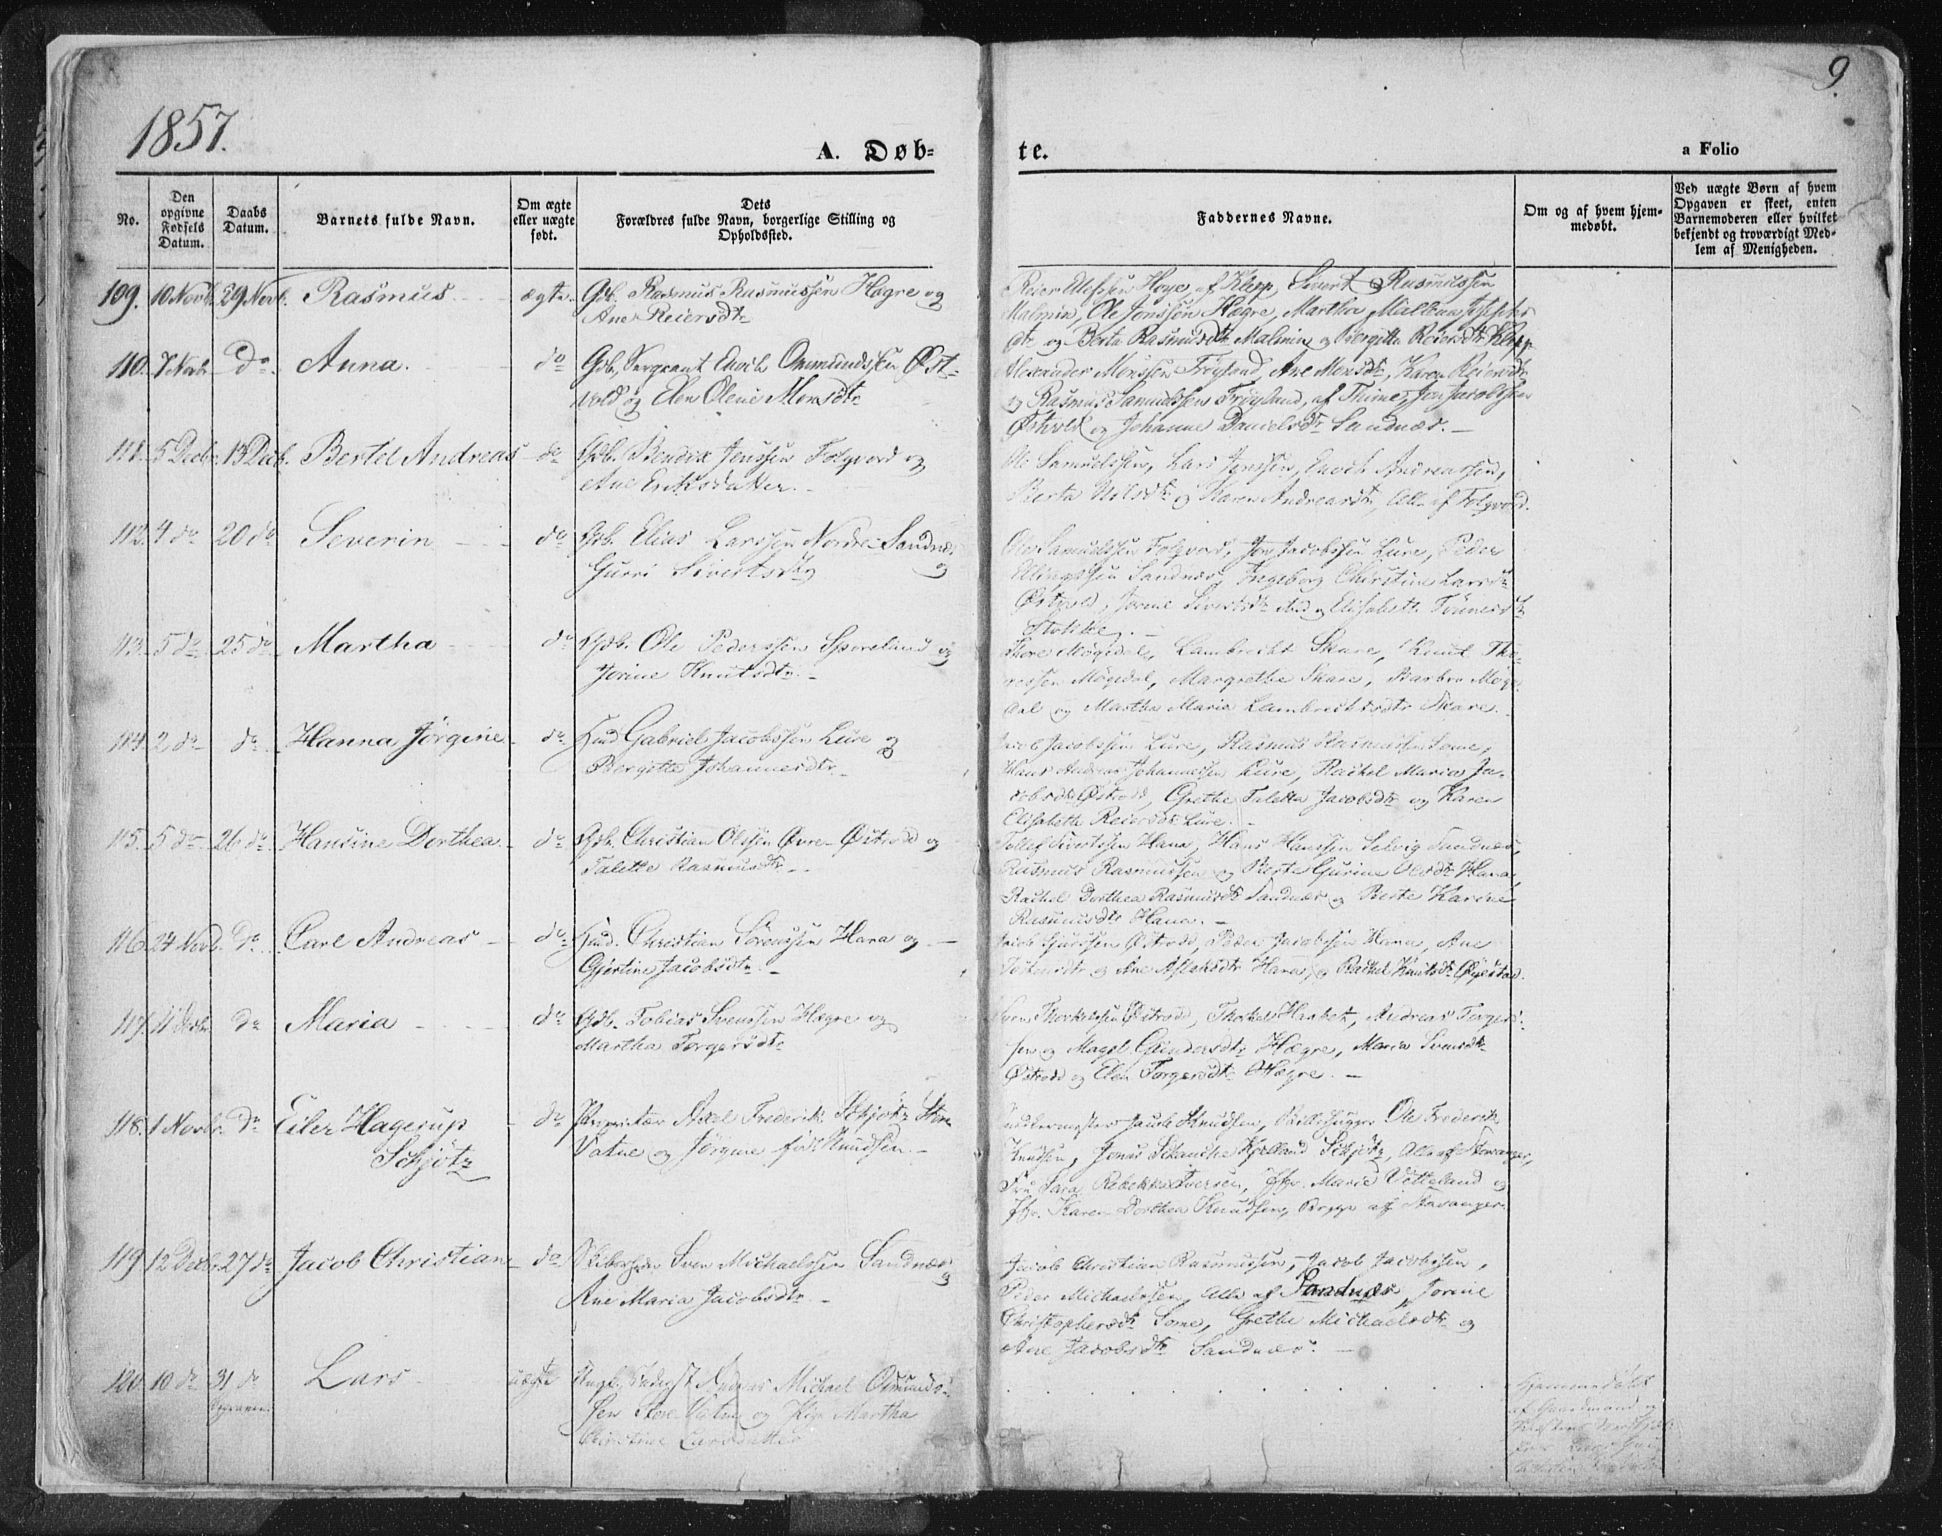 1857.
9.
A. Døb=
te.
a Folio
No.
Den opgivne Fødsels Datum.
Daabs Datum.
Barnets fulde Navn.
Om ægte eller uægte født.
Dets
Forældres fulde Navn, borgerlige Stilling og
Opholdssted.
Faddernes Navne.
Om og af hvem hjem-
medøbt.
Ved uægte Børn af hvem
Opgaven er skeet, enten
Barnemoderen eller hvilket
bekjendt og troværdigt Med-
lem af Menigheden.
109. 10 Novb. 29 Novb. Rasmus ægte. Gdb. Rasmus Rasmussen Høgre og
Ane Reiersdtr
Reier Ulfssen Høye af Klepp, Sivert Rasmussen
Malmin, Ole Jonssen Høgre, Martha Malena
dtr og Berta Rasmusdtr Malmin og Bergitta Reiersdtr Klepp.
110. 7 Novb. do Anna. do Gdb. Sergeant Enoch Ommundssen Øst-
vold og Elen Olene Monsdtr
Alexander Monssen Frøyland, Ane Monsdtr, Karen Reiersdtr
og Rasmus Samuelssen Frøyland, af Thime, Jon Jacobssen
Østvold og Johanne Danielsdtr Sandnæs. —
111. 5 Decbr. 13 Decb. Bertel Andreas do Gdb. Bendix Jonssen Folgvord og
Ane Eriksdatter.
Ole Samuelssen, Lars Jonssen, Enoch Andreassen,
Berta Nilsdtr og Karen Andreasdtr, Alle af Folgvord.
112. 4 do 20 do Severin do Gdb. Elias Larssen Nordre Sandnæs
og
Gurri Sivertsdtr
Ole Samuelssen Folgvord, Jon Jacobssen Lure, Peder
Sandnæs, Ingeborg Christine Larsdtr
Østvold, Jorine Sivertsdtr og Elisabeth Tønnesdtr
113. 5 do 25 do Martha do Gdb. Ole Pederssen Sporeland og
Jorine Knutsdtr. —
Tore Møgedal, Lambrecht Skare, Knut Tho-
ressen Møgedal, Margrethe Skare, Barbro Møge-
dal og Martha Maria Lambrechtsdtr Skare.
114. 2 do do Hanna Jørgine do Hmd Gabriel Jacobssen Lure og
Bergitte Johannesdtr.
Jacob Jacobssen Lure, Rasmus Rasmussen Some,
Hans Andreas Johannessen Lure, Rachel Maria Ja-
cobsdtr Østvold, Grethe Taletta Jacobsdtr og Karen
Elisabeth Reiersdtr Lure. —
115. 5 do 26 do Hansine Dorthea do Gdb. Christian Olssen Øvre Østvold og
Talette Rasmusdtr.
Tollef Sivertssen Hana, Hans Hanssen Selvig Sandnæs,
Rasmus Rasmussen og Berte Gurine Olsdtr Hana
Rachel Dorthea Rasmusdtr Sandnæs og Berte Karine
Rasmusdtr Hana. —
116. 24 Novb. do Carl Andreas do Hmd. Christian Sørenssen Hana og
Gjertine Jacobsdtr. —
Jacob Østvold, Peder Jacobssen Hana, Ane
og Ane Aslaksdtr Hana, og Rachel Knutsdtr Øyestad.
117. do Maria do Gdb. Tobias Svenssen Høgre og
Martha Torgersdtr
Sven Thorkelssen Østvold, Thorkel Haabet, Andreas Torgers-
sen og Magel Gundersdtr Høgre, Maria Svensdtr
Østvold og Elen Torgersdtr Høgre. —
118. 1 Novbr. do Eiler Hagerup
Schjötz
do Proprietær Axel Frederik Schjötz Store
Vatne og Jörgine født Knudsen. —
Jacob Knudsen, Ole Frederik
Knudsen, Jonas Schanche Kjelland Schjötz, Alle af Stavanger,
Fru Sara Rebekka Iversen, Marie Vetteland og
Karen Dorthea Knudsen, Begge af Stavanger.
119. 12 Decbr. 27 do Jacob Christian do Skibsreder Sven Michaelssen Sandnæs
og
Ane Maria Jacobsdtr. —
Jacob Christian Rasmussen, Jacob Jacobssen,
Peder Michaelssen, Alle af Sandnæs, Jorine
Christophersdtr Some, Grethe Michaelsdtr og
Ane Jacobsdtr Sandnæs. —
120. 10 do 31 do Lars uægte Ungk. Andreas Michael Osmunds-
sen Store Vatne og Pige Martha
Christine Larsdatter
Hjemmedøbt
af Gaardmand